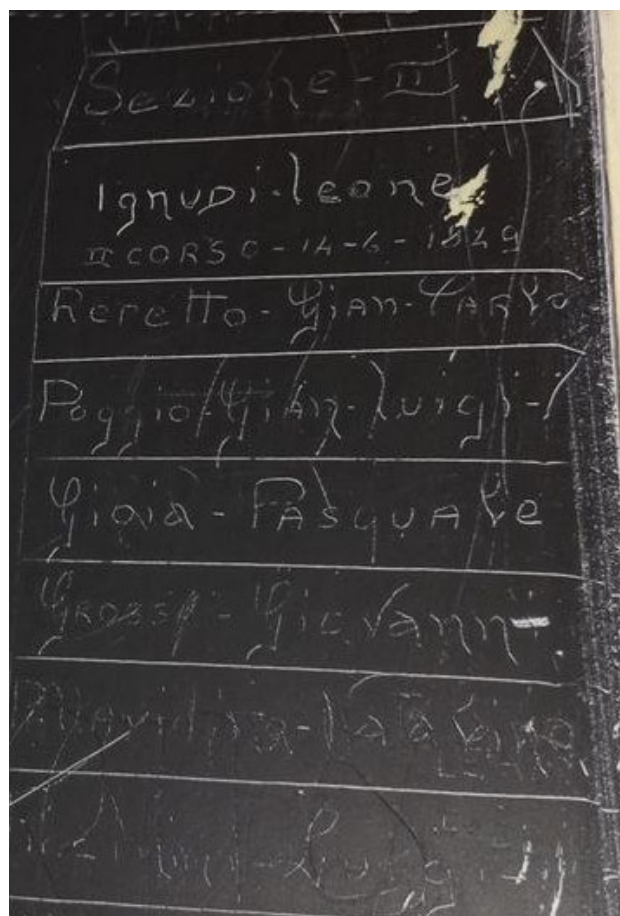 Sezione - II
Ignudi - leone
II CORSO - 14 - 6 - 1849
Reretto - Gian - Carlo
Poggio - Gian - Luigi -
Gioia - PAsquale
Grossi - Giovanni
Luigi